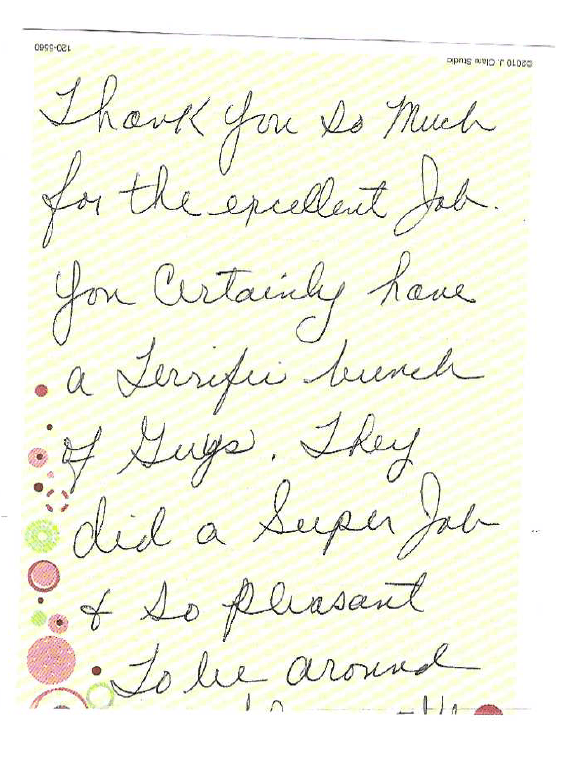 120-5560
©2010 J. Clare Studio
Thank You So Much
for the excellent Job.
You Certainly have
a Terrific bunch
of Guys. They
did a Super Job
& So Pleasant
To be around